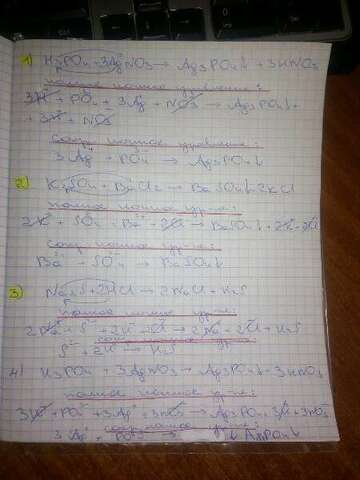 1) H₃PO₄ + 3AgNO₃ → Ag₃PO₄↓ + 3HNO₃
полное ионное уравнение:
3H⁺ + PO₄ + 3Ag⁺ + NO₃ → Ag₃PO₄↓ +
+ 3H⁺ + NO₃
сокр. ионное уравнение:
3Ag⁺ + PO₄ → Ag₃PO₄↓
2) K₂SO₄ + BaCl₂ → BaSO₄↓ 2KCl
полное ионное ур-ие:
2K⁺ + SO₄ + Ba + 2Cl → BaSO₄↓ + 2K + 2Cl
Сокр. ионное ур-ие:
Ba + SO₄ → BaSO₄↓
3) Na₂S + 2HCl → 2NaCl + H₂S
полное ионное ур-ие:
2Na + S²⁻ + 2H⁺ + 2Cl → 2Na + 2Cl + H₂S
сокр. ионное ур
S²⁻ + 2H → H₂S
4) H₃PO₄ + 3AgNO₃ → Ag₃PO₄↓ + 3HNO₃
полное ионное ур-ие:
3H⁺ + PO₄ + 3Ag + 3NO₃ → Ag₃PO₄ + 3H + 3NO₃
сокр. ионное ур-ие:
3Ag + PO₄ →